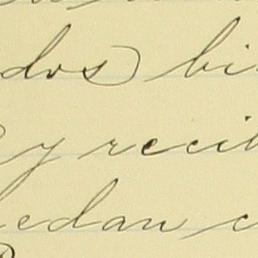 dos bi
y recib
edan c